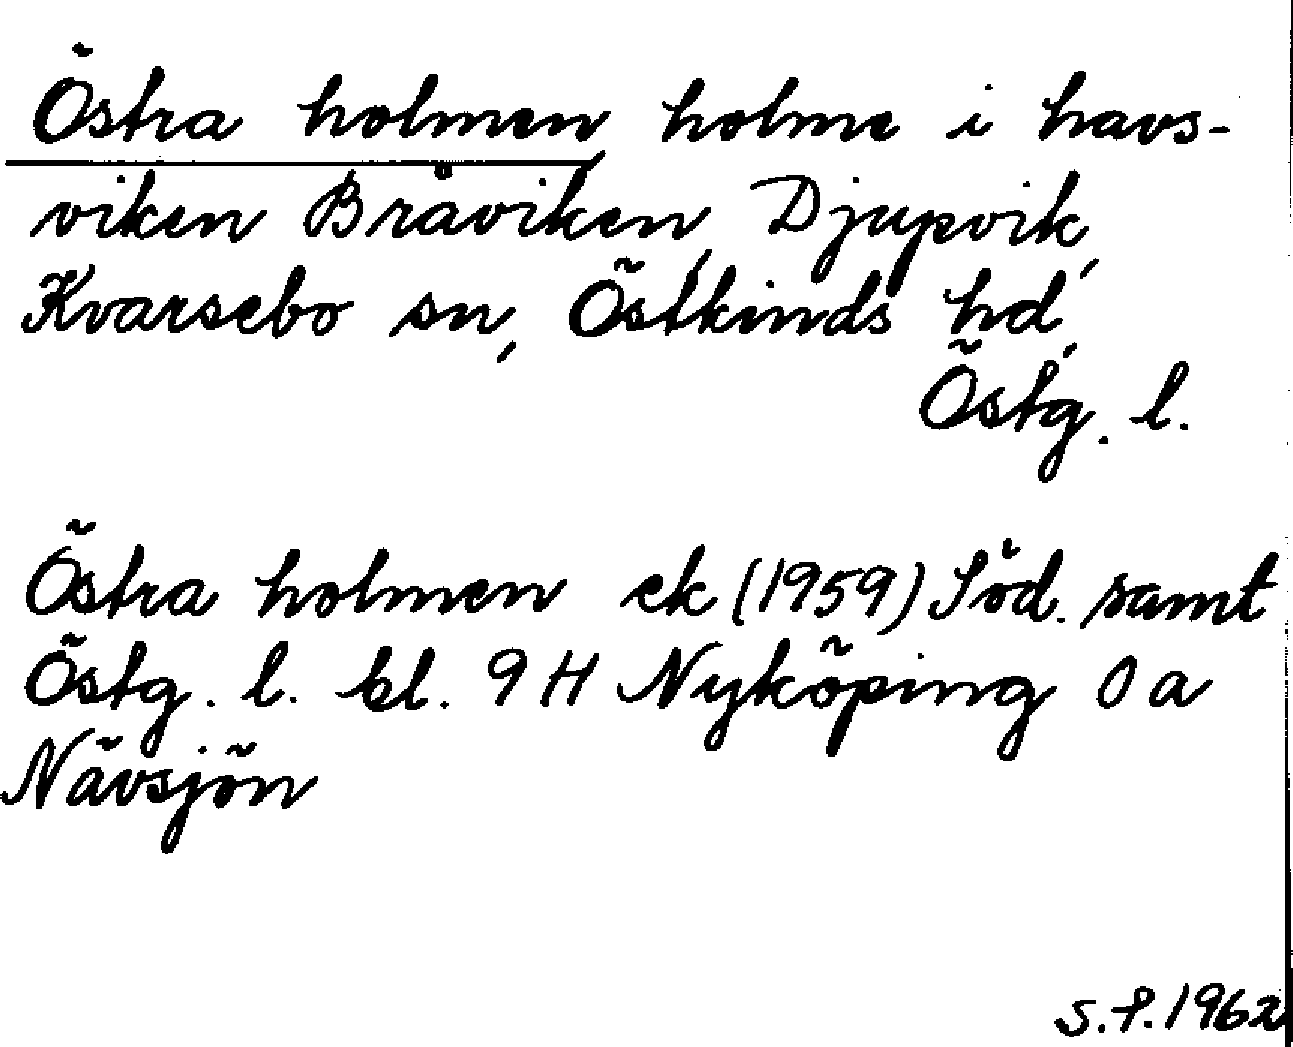 Östra holmen holme i havs-
viken Bråviken, Djupvik,
Kvarsebo sn, Östkinds hd,
Östg. l.
Östra holmen ek (1959) Söd. samt
Östg. l. bl. 9 H Nyköping 0 a
Nävsjön
S.F. 1962